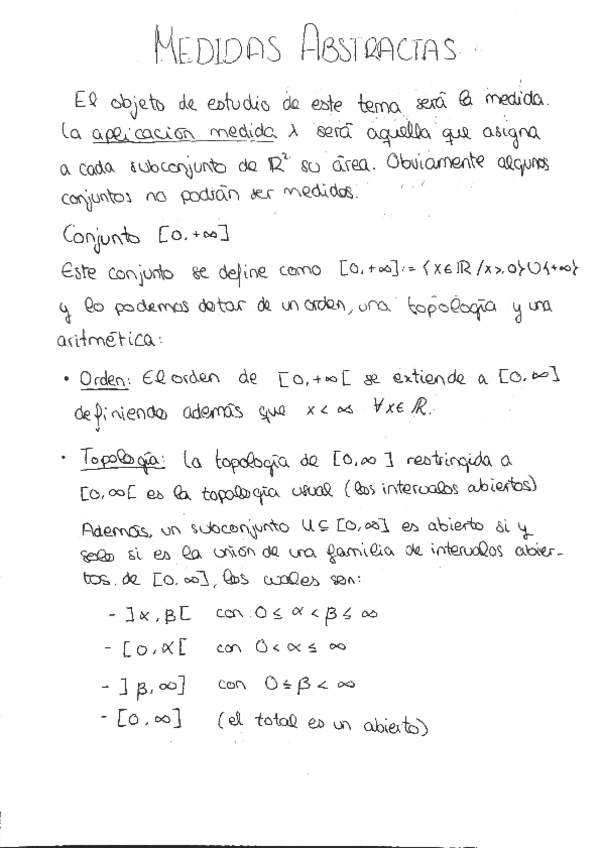 MEDIDAS ABSTRACTAS
El objeto de estudio de este tema será la medida.
La aplicación medida λ será aquella que asigna
a cada subconjunto de ℝ² su área. Obviamente algunos
conjuntos no podrán ser medidos.
Conjunto [0,+∞]
Este conjunto se define como [0,+∞]:={x∈ℝ/x≥0}∪{+∞}
y lo podemos dotar de un orden, una topología y una
aritmética:
• Orden: El orden de [0,+∞[ se extiende a [0,∞]
definiendo además que x<∞ ∀x∈ℝ.
• Topología: La topología de [0,∞] restringida a
[0,∞[ es la topología usual (los intervalos abiertos)
Además, un subconjunto U⊆[0,∞] es abierto si y
solo si es la unión de una familia de intervalos abier-
tos de [0,∞], los cuales son:
- ]α,β[ con 0≤α<β≤∞
- [0,α[ con 0<α≤∞
- ]β,∞] con 0≤β<∞
- [0,∞] (el total es un abierto)